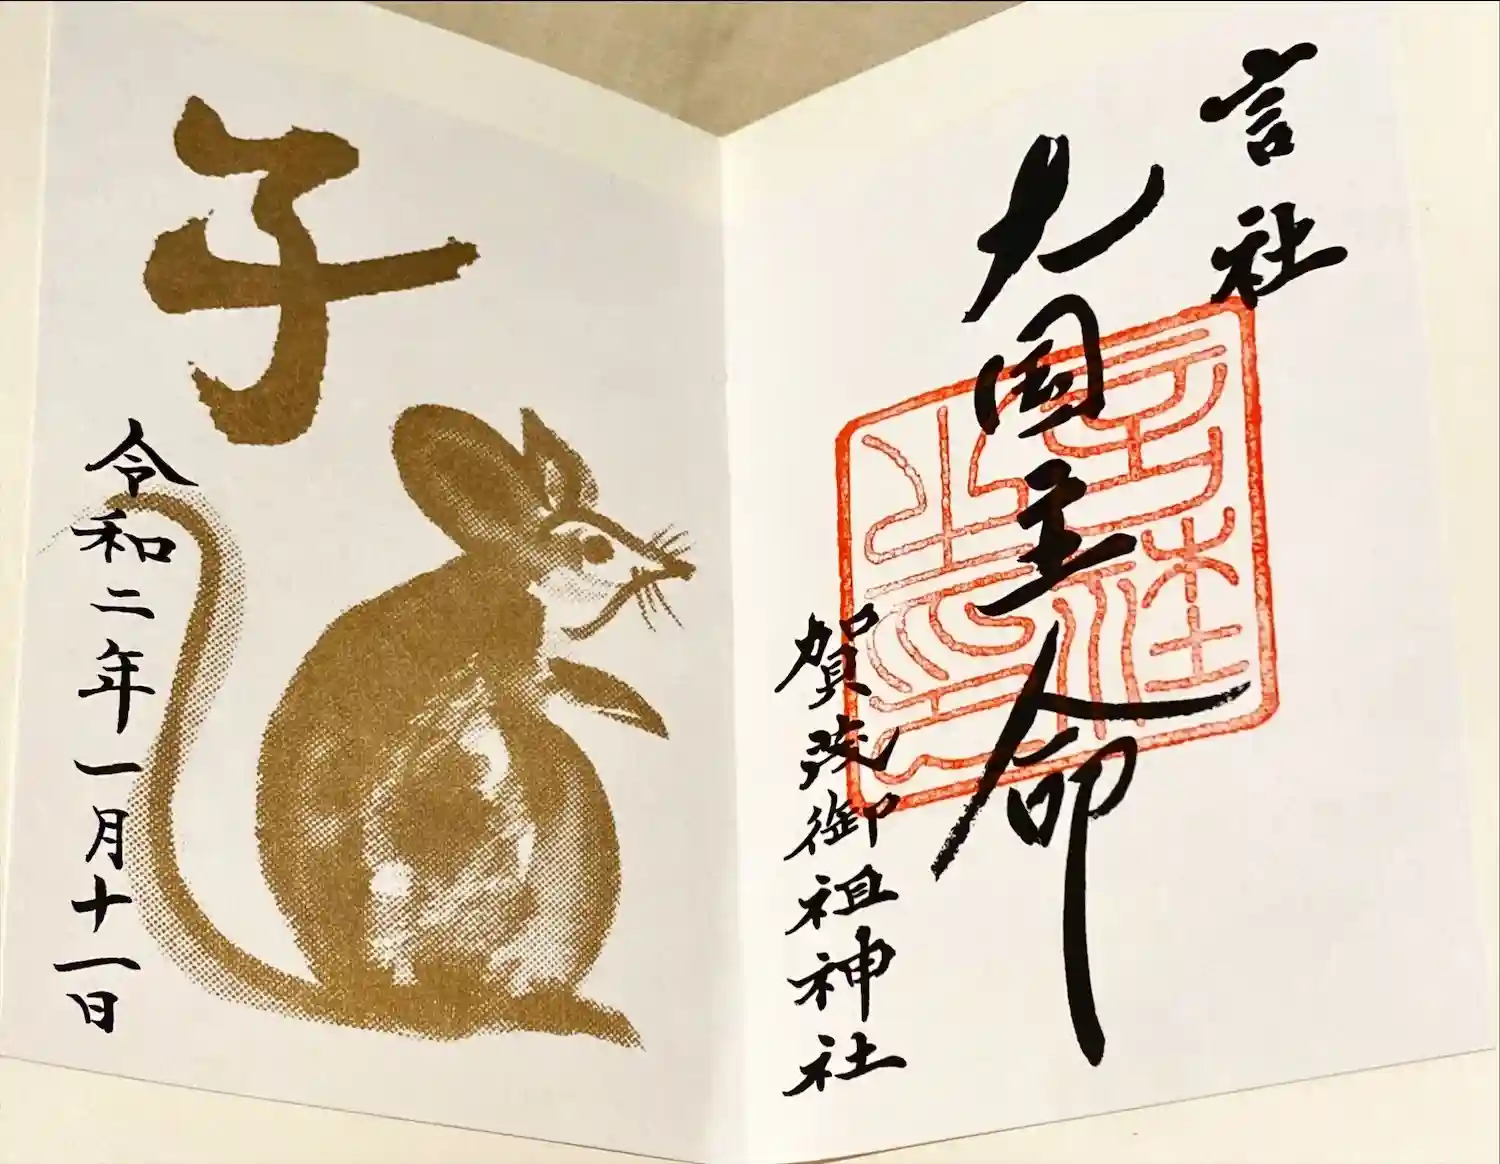 言社
大国主命
賀茂御祖神社
子
令和二年一月十一日